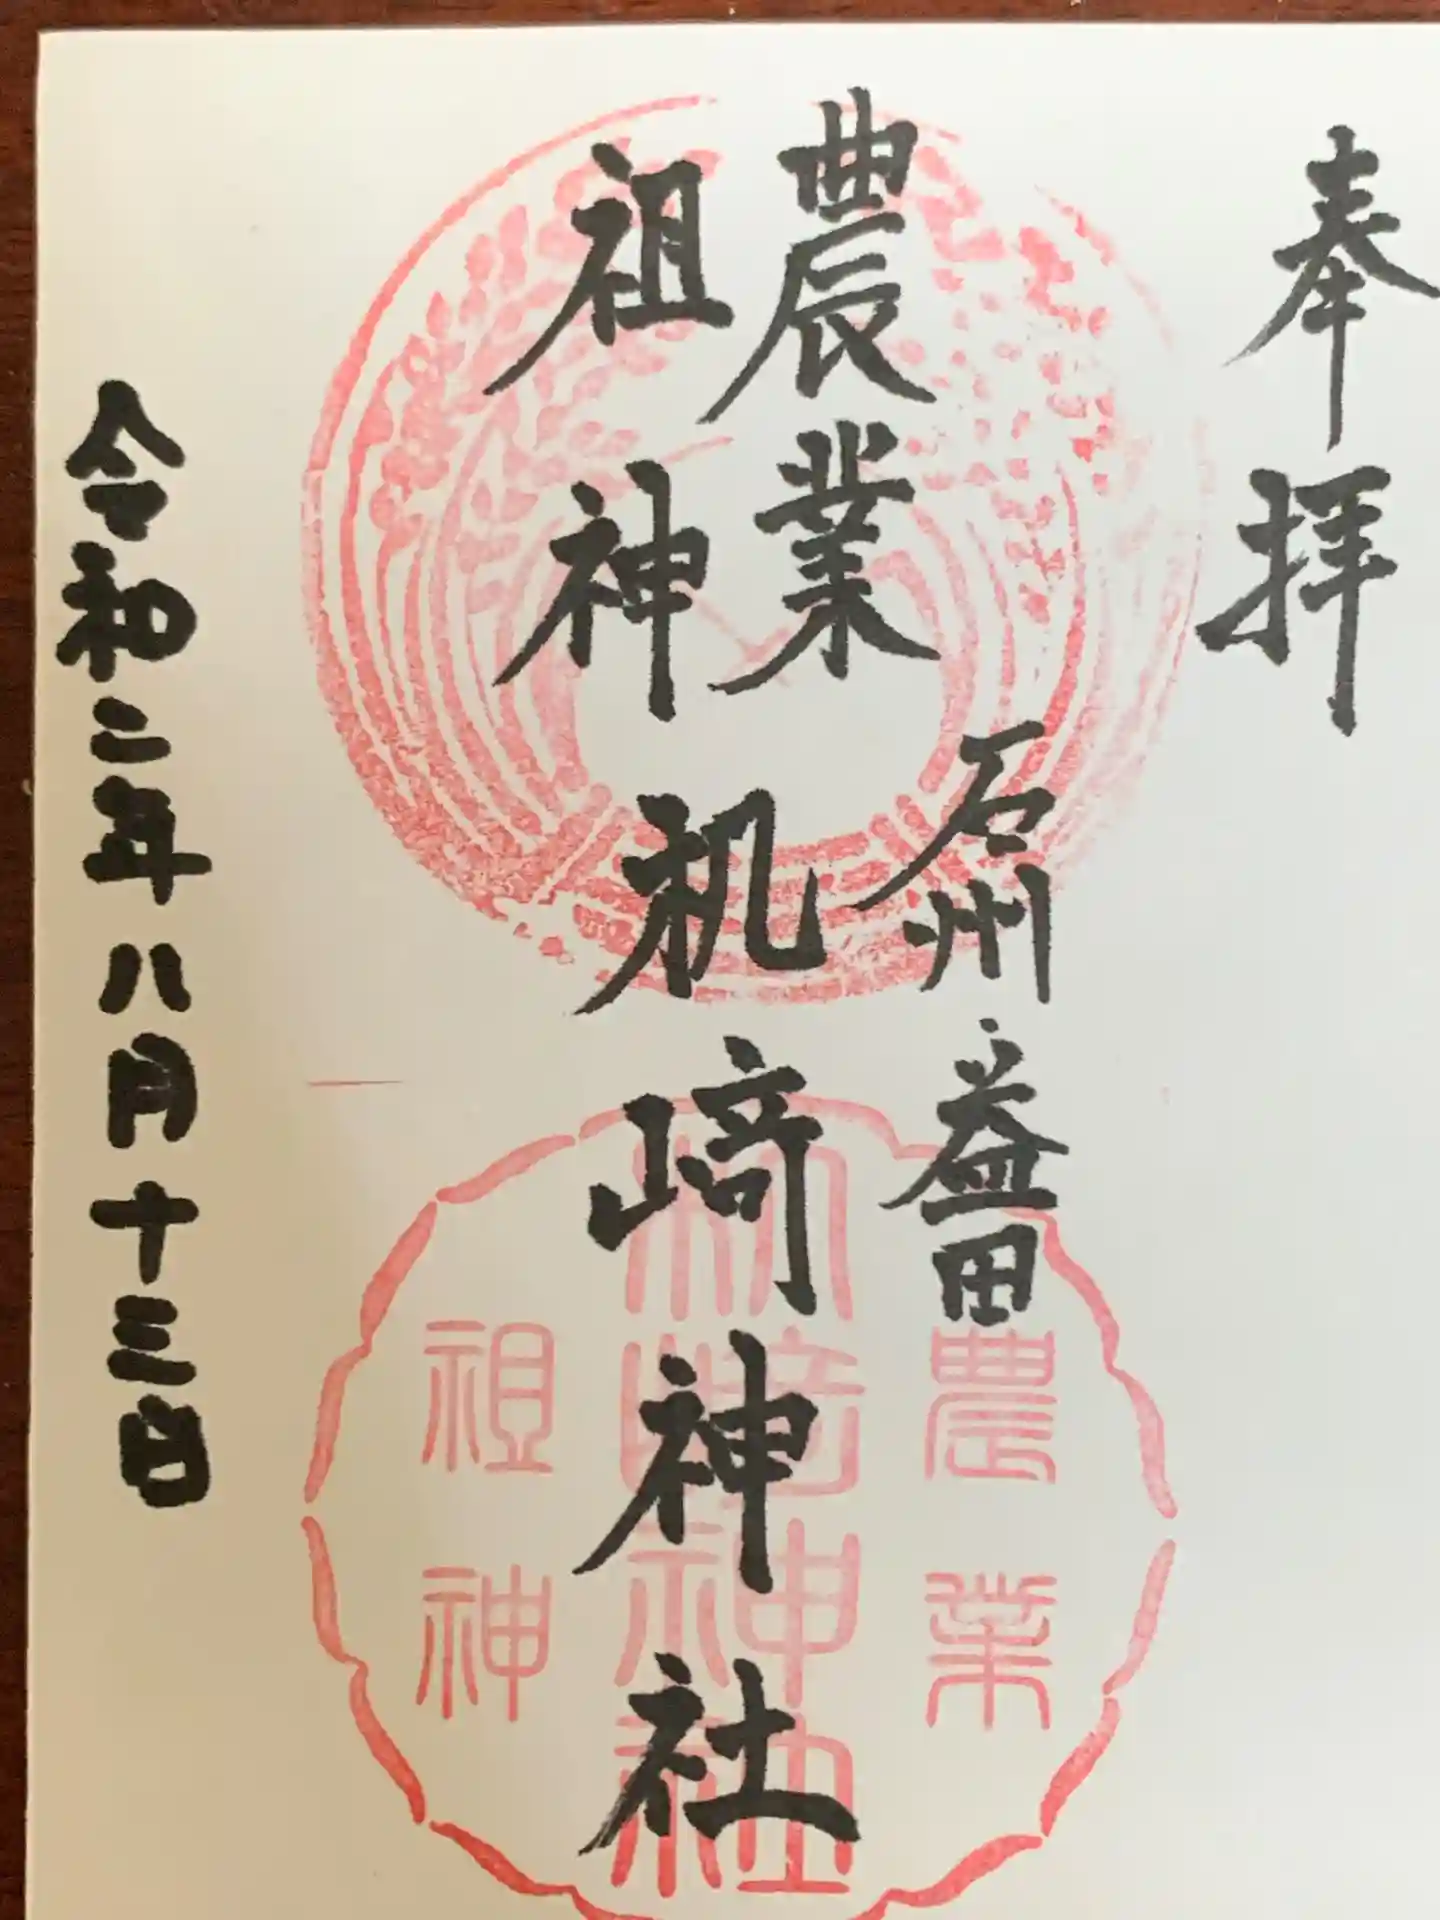 奉拝
石州益田
農業
祖神
机﨑神社
令和二年八月十三日
農業
机﨑神社
祖神